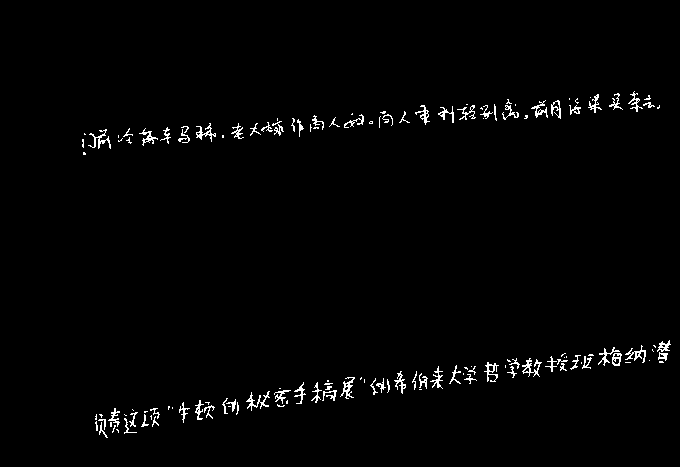 门前冷落车马稀，老大嫁作商人妇。商人重利轻别离，前月浮梁买茶去。
负责这项“牛顿的秘密手稿展”的希伯来大学哲学教授班梅纳潜